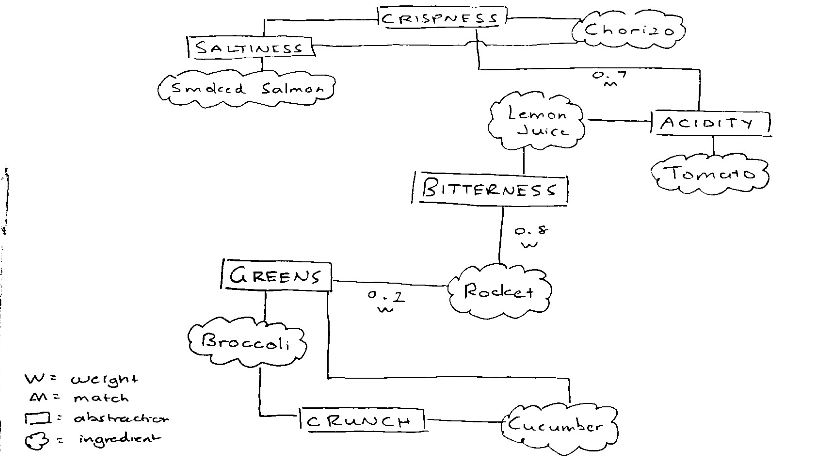 CRISPNESS
Chorizo
SALTINESS
Smoked Salmon
0.7
m
Lemon
Juice
ACIDITY
Tomato
BITTERNESS
0.8
w
GREENS
0.2
w
Rocket
Broccoli
W = weight
M = match
= abstraction
= ingredient
CRUNCH
Cucumber